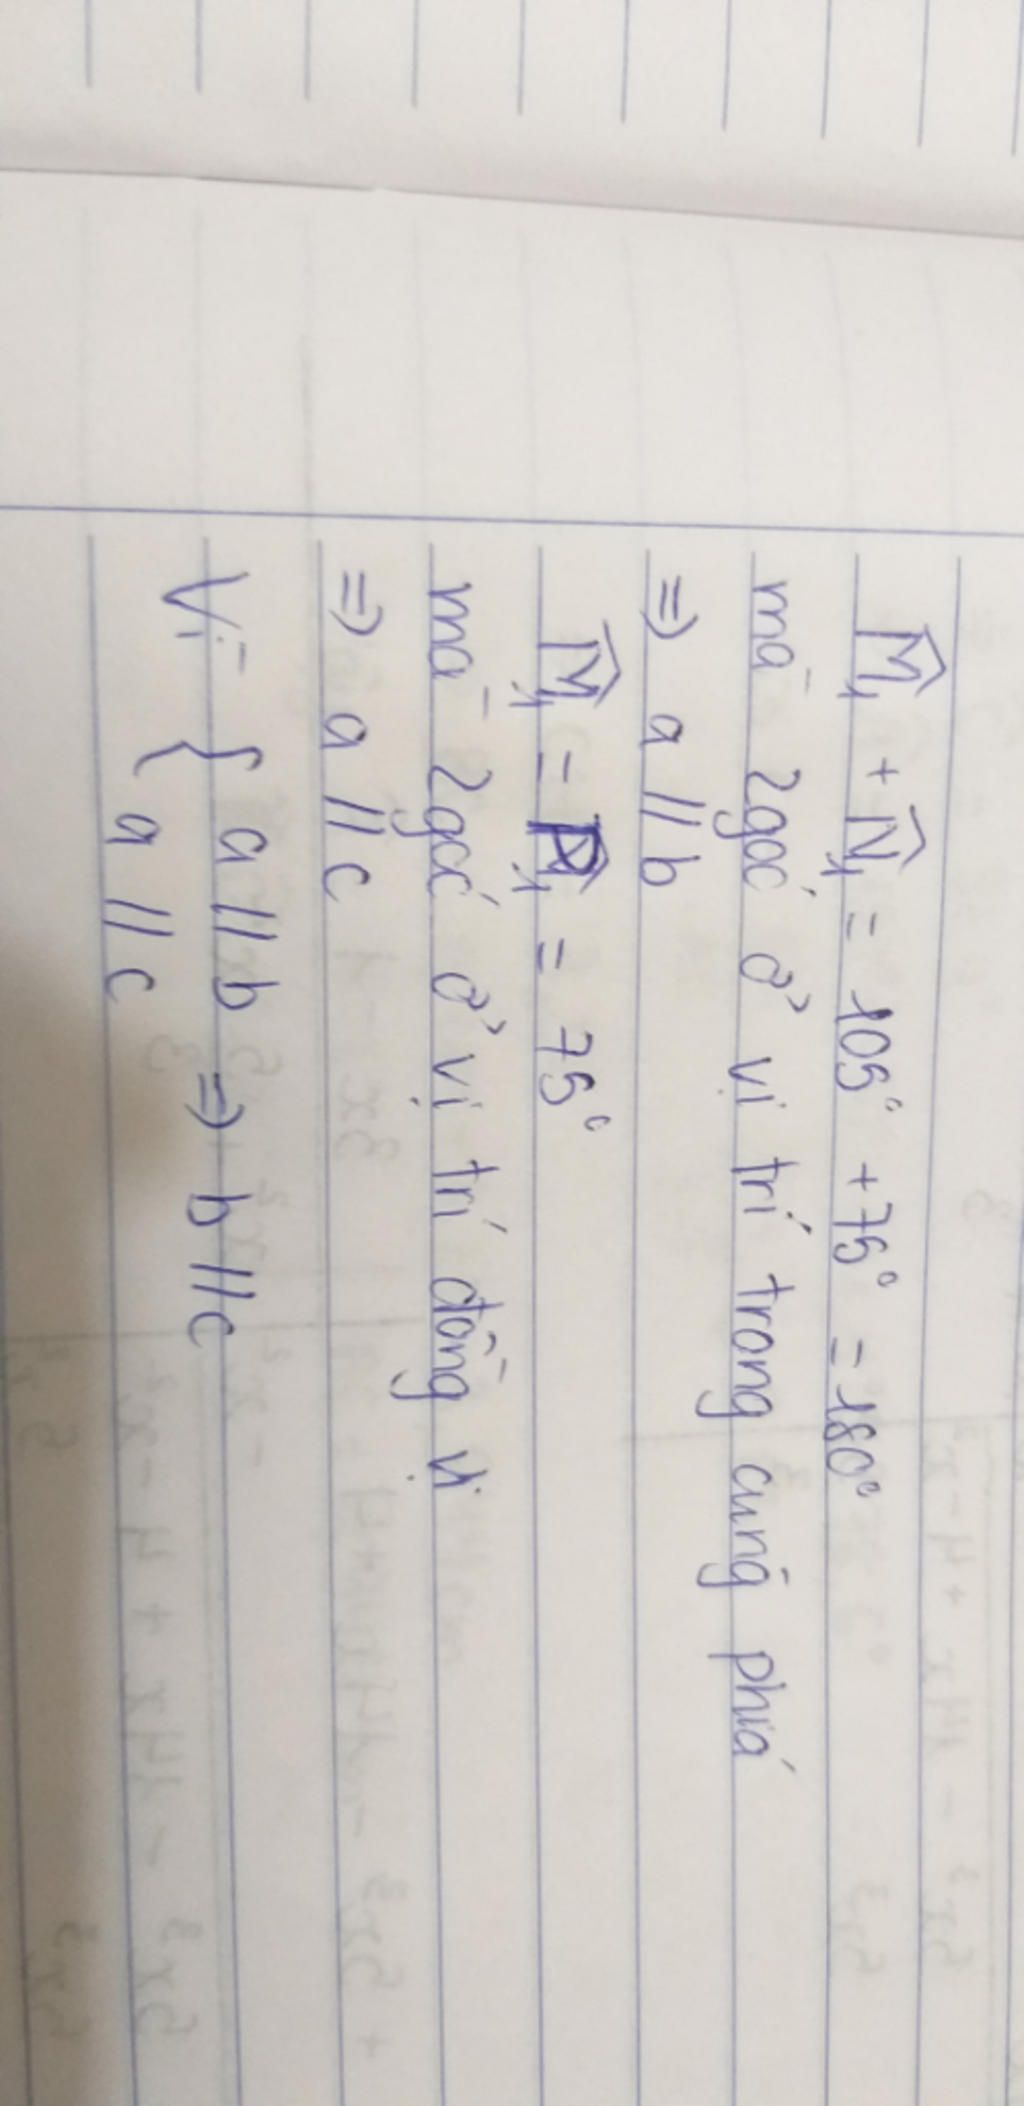 M̂₁ + N̂₁ = 105° + 75° = 180°
mà 2 góc ở vị trí trong cùng phía
=> a // b
M̂₁ = P̂₁ = 75°
mà 2 góc ở vị trí đồng vị
=> a // c
Vì { a // b => b // c
a // c